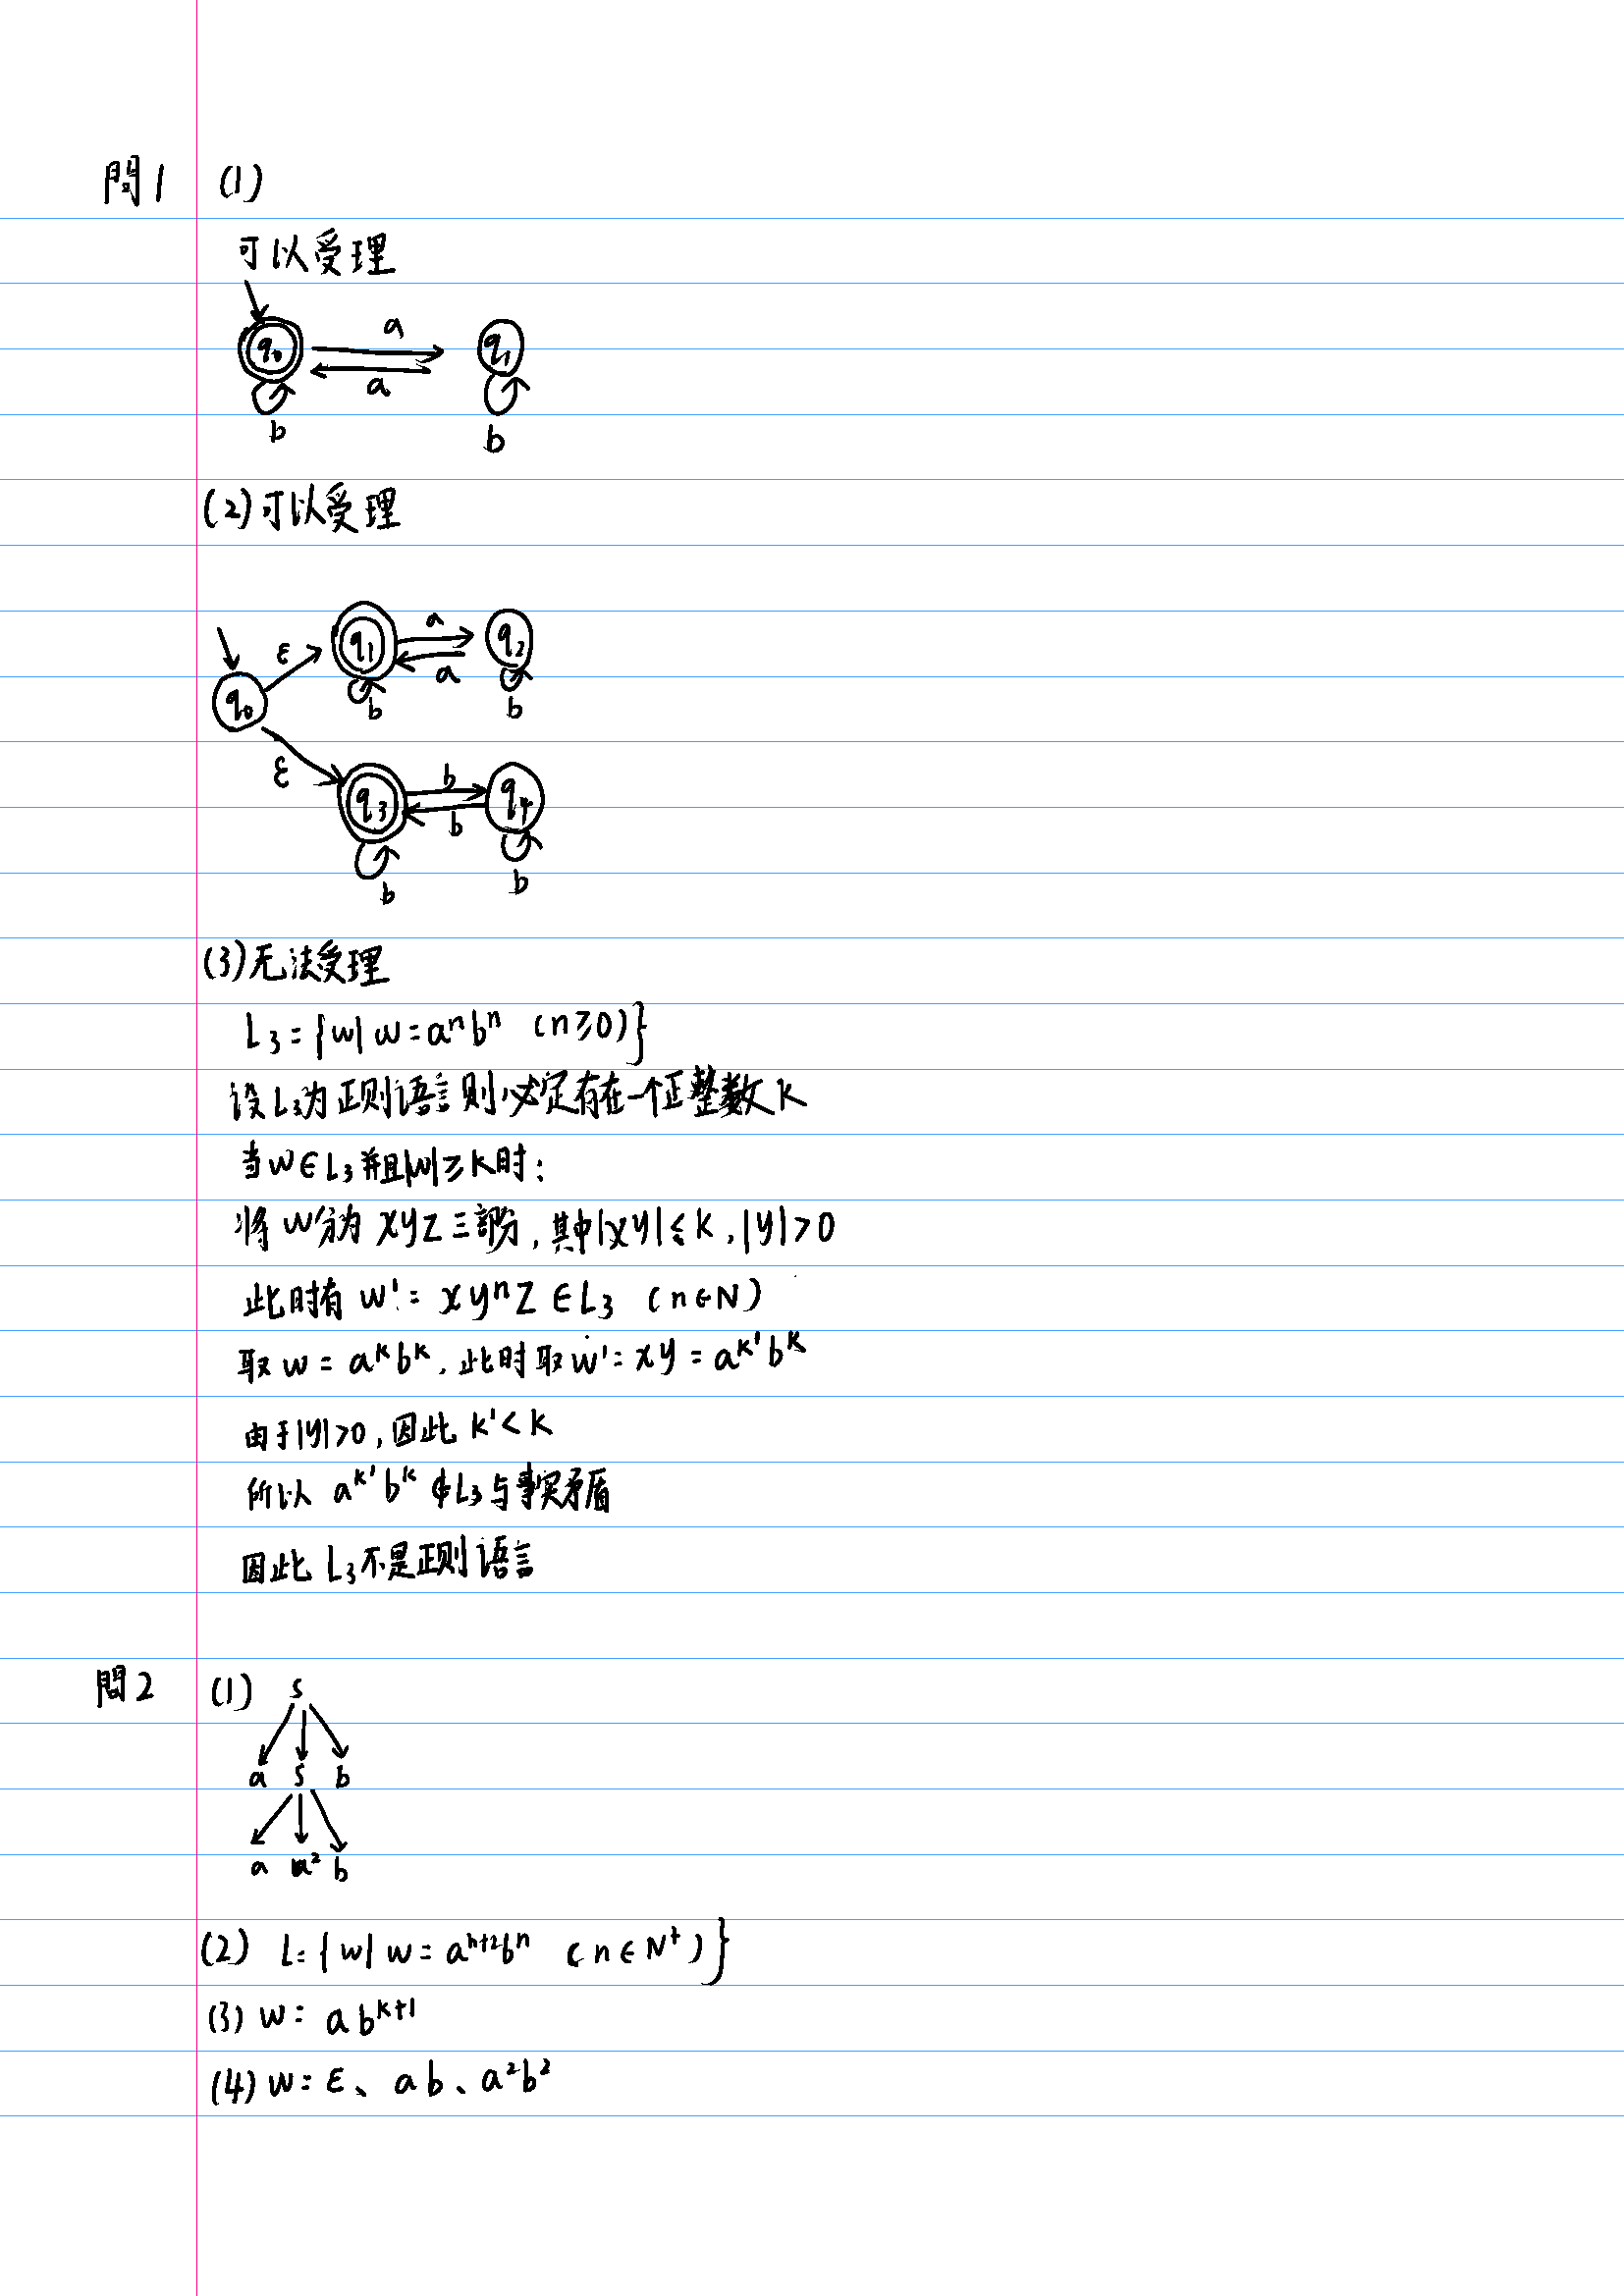 問1 (1)
可以受理
q₀ a q₁
a
b b
(2)可以受理
ε q₁ a q₂
a
q₀ b b
ε q₃ b q₄
b
b b
(3)无法受理
L₃={w|w=aⁿbⁿ (n≥0)}
设L₃为正则语言则必定存在一个正整数K
当w∈L₃并且|w|≥K时:
将w分为xyz三部分,其中|xy|≤K,|y|>0
此时有w'=xyⁿz∈L₃ (n∈N)
取w=aᴷbᴷ,此时取w'=xy=aᴷ'bᴷ
由于|y|>0,因此K'<K
所以 aᴷ'bᴷ∉L₃与事实矛盾
因此L₃不是正则语言
問2 (1) S
a S b
a a² b
(2) L={w|w=aⁿ⁺²bⁿ (n∈N⁺)}
(3) w=abᴷ⁺¹
(4) w=ε、ab、a²b²